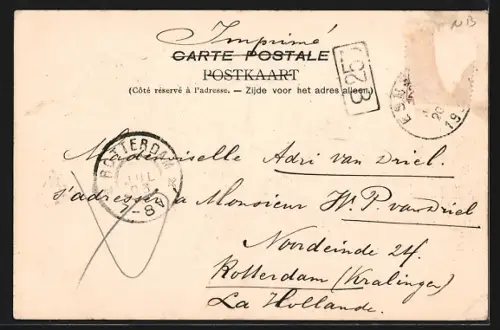 NB
Imprimé
CARTE POSTALE
POSTKAART
(Côté réservé à l'adresse. — Zijde voor het adres alleen.)
257
B
ROTTERDAM
JUL
7-8V
Mademoiselle Adri van Driel.
s'adresser a Monsieur W. P. van Driel
Noordeinde 24.
Rotterdam (Kralingen)
La Hollande.